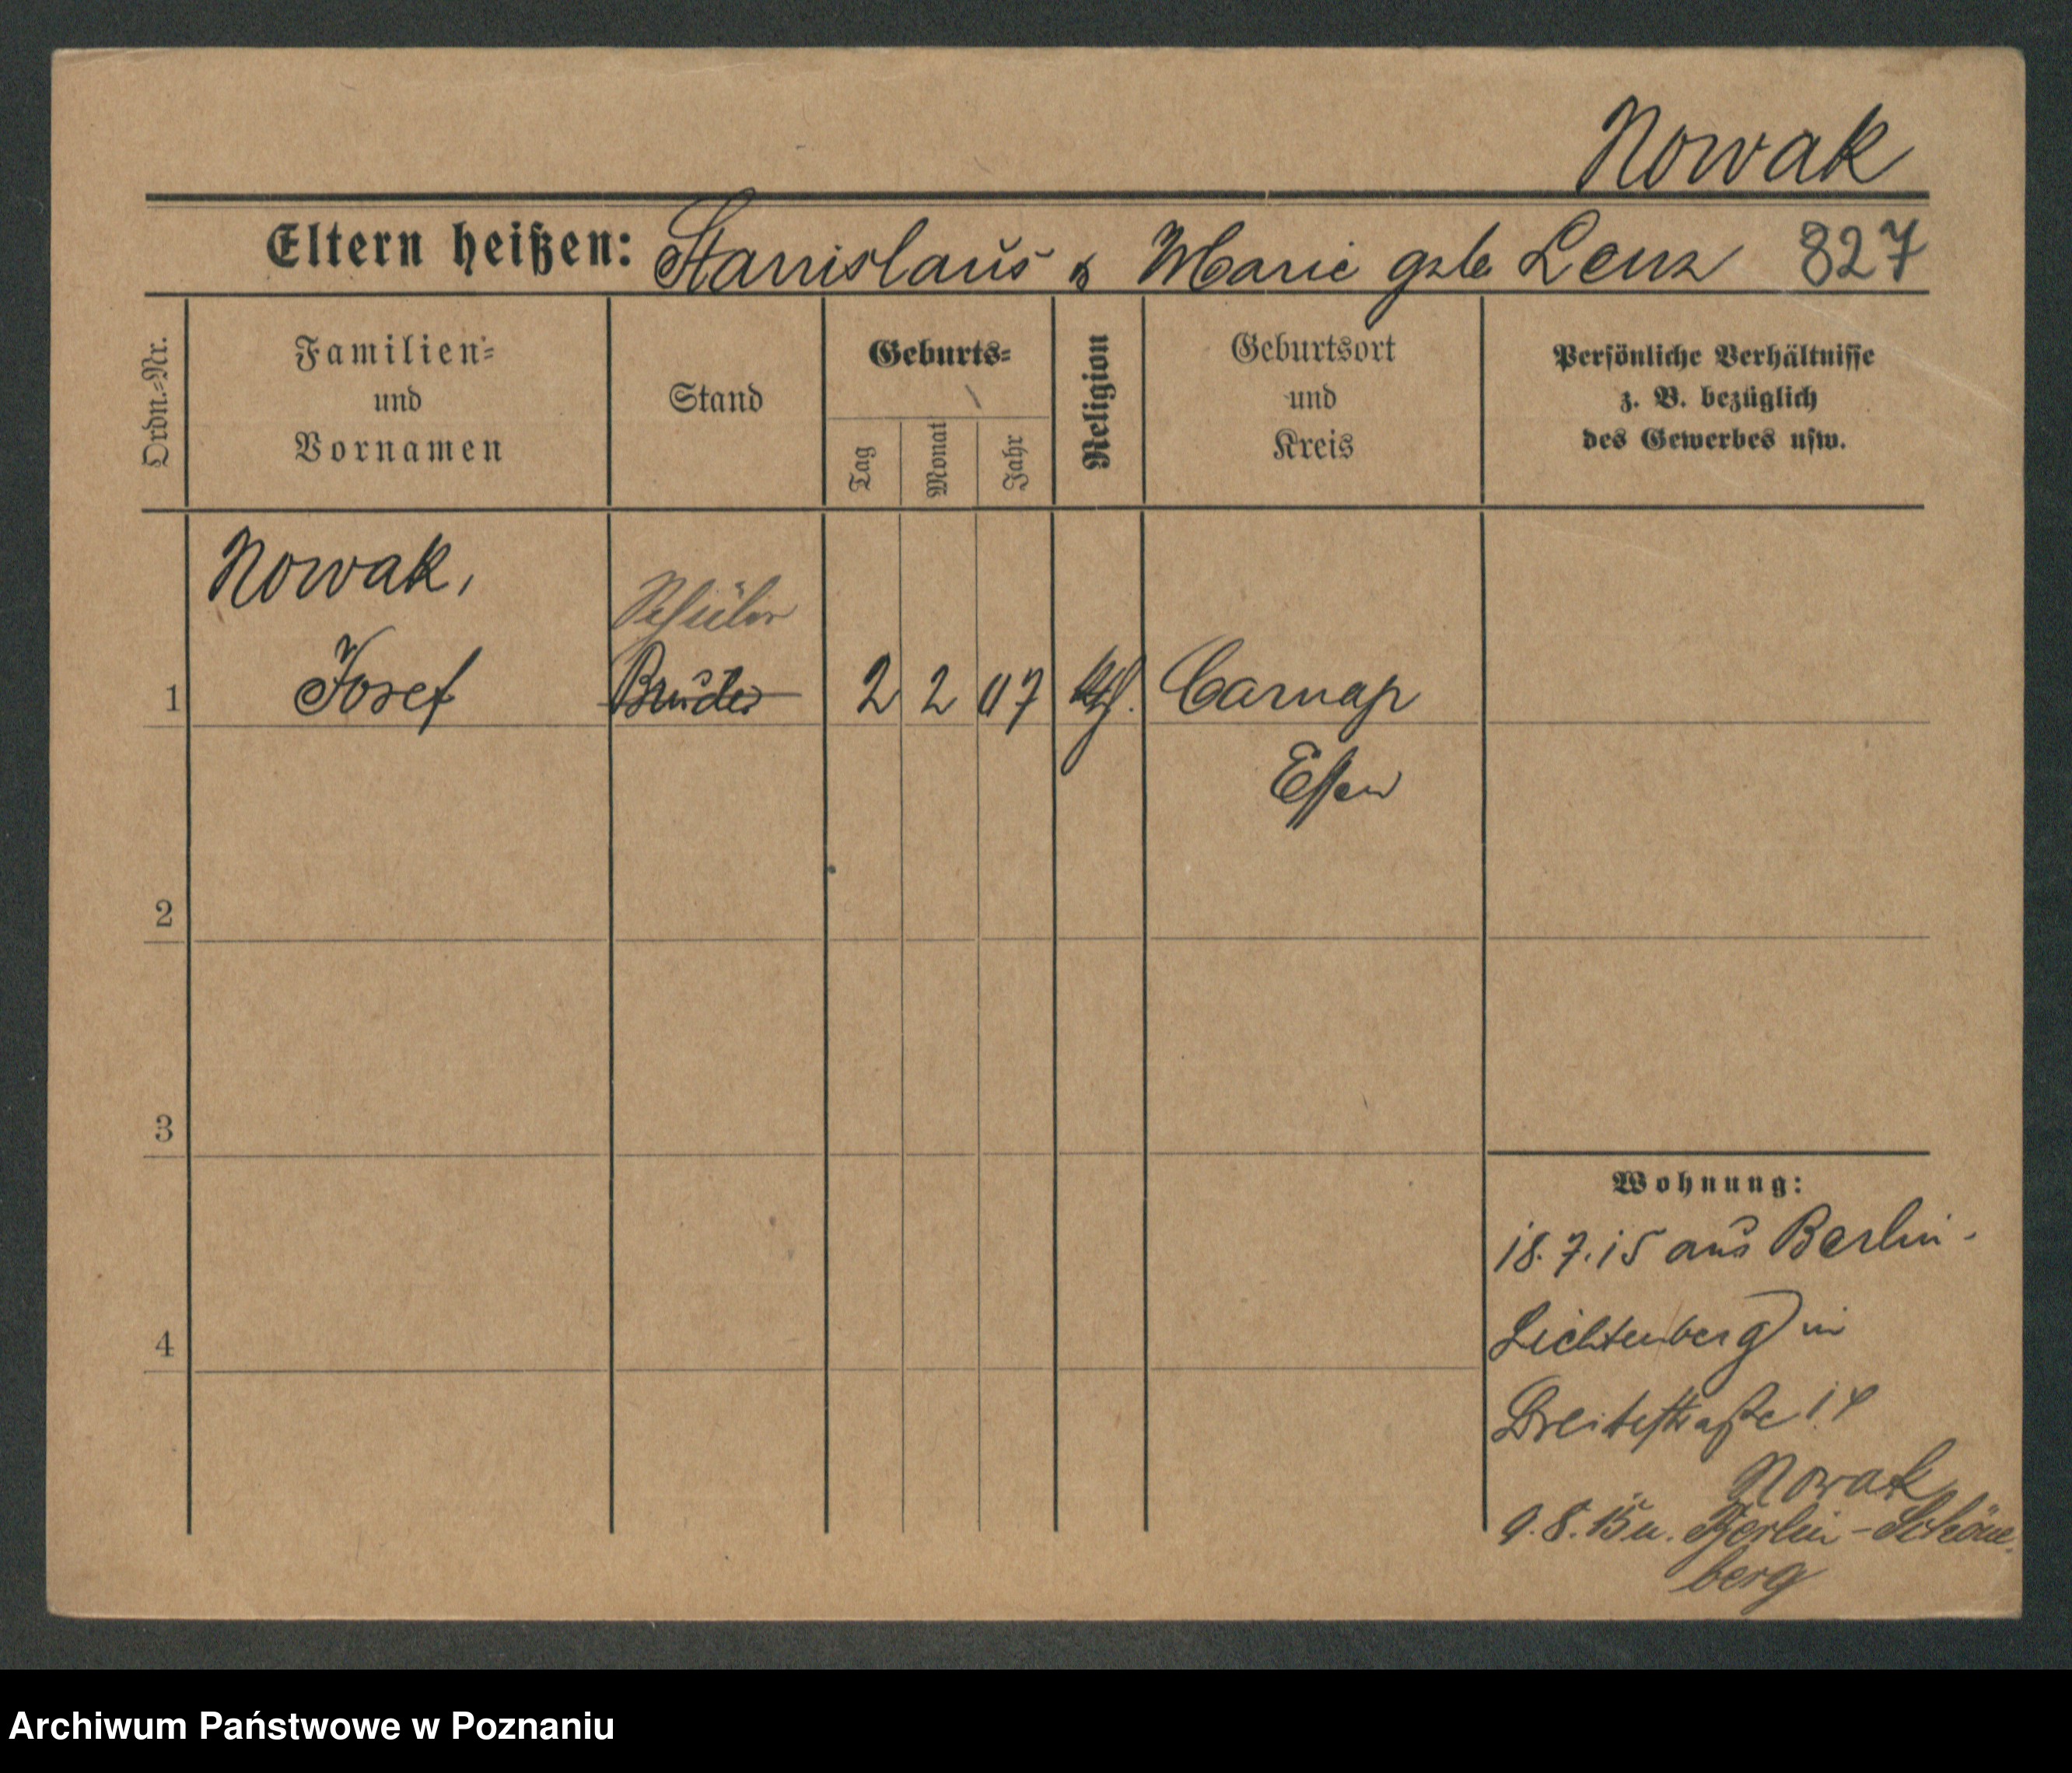 Nowak
Eltern heißen: Stanislaus & Marie geb. Lenz 827
Ordn.-Nr.
Familien-
und
Vornamen
Stand
Geburts-
Tag
Monat
Jahr
Religion
Geburtsort
und
Kreis
Persönliche Verhältnisse
z. B. bezüglich
des Gewerbes usw.
Nowak,
Schüler
1 Josef Bruder 2 2 07 kth. Carnap
Essen
2
3
4
Wohnung:
18.7.15 aus Berlin-
Lichtenberg in
Breitestraße 14
Nowak
9.8.15 n. Berlin-Schöne
berg
Archiwum Państwowe w Poznaniu